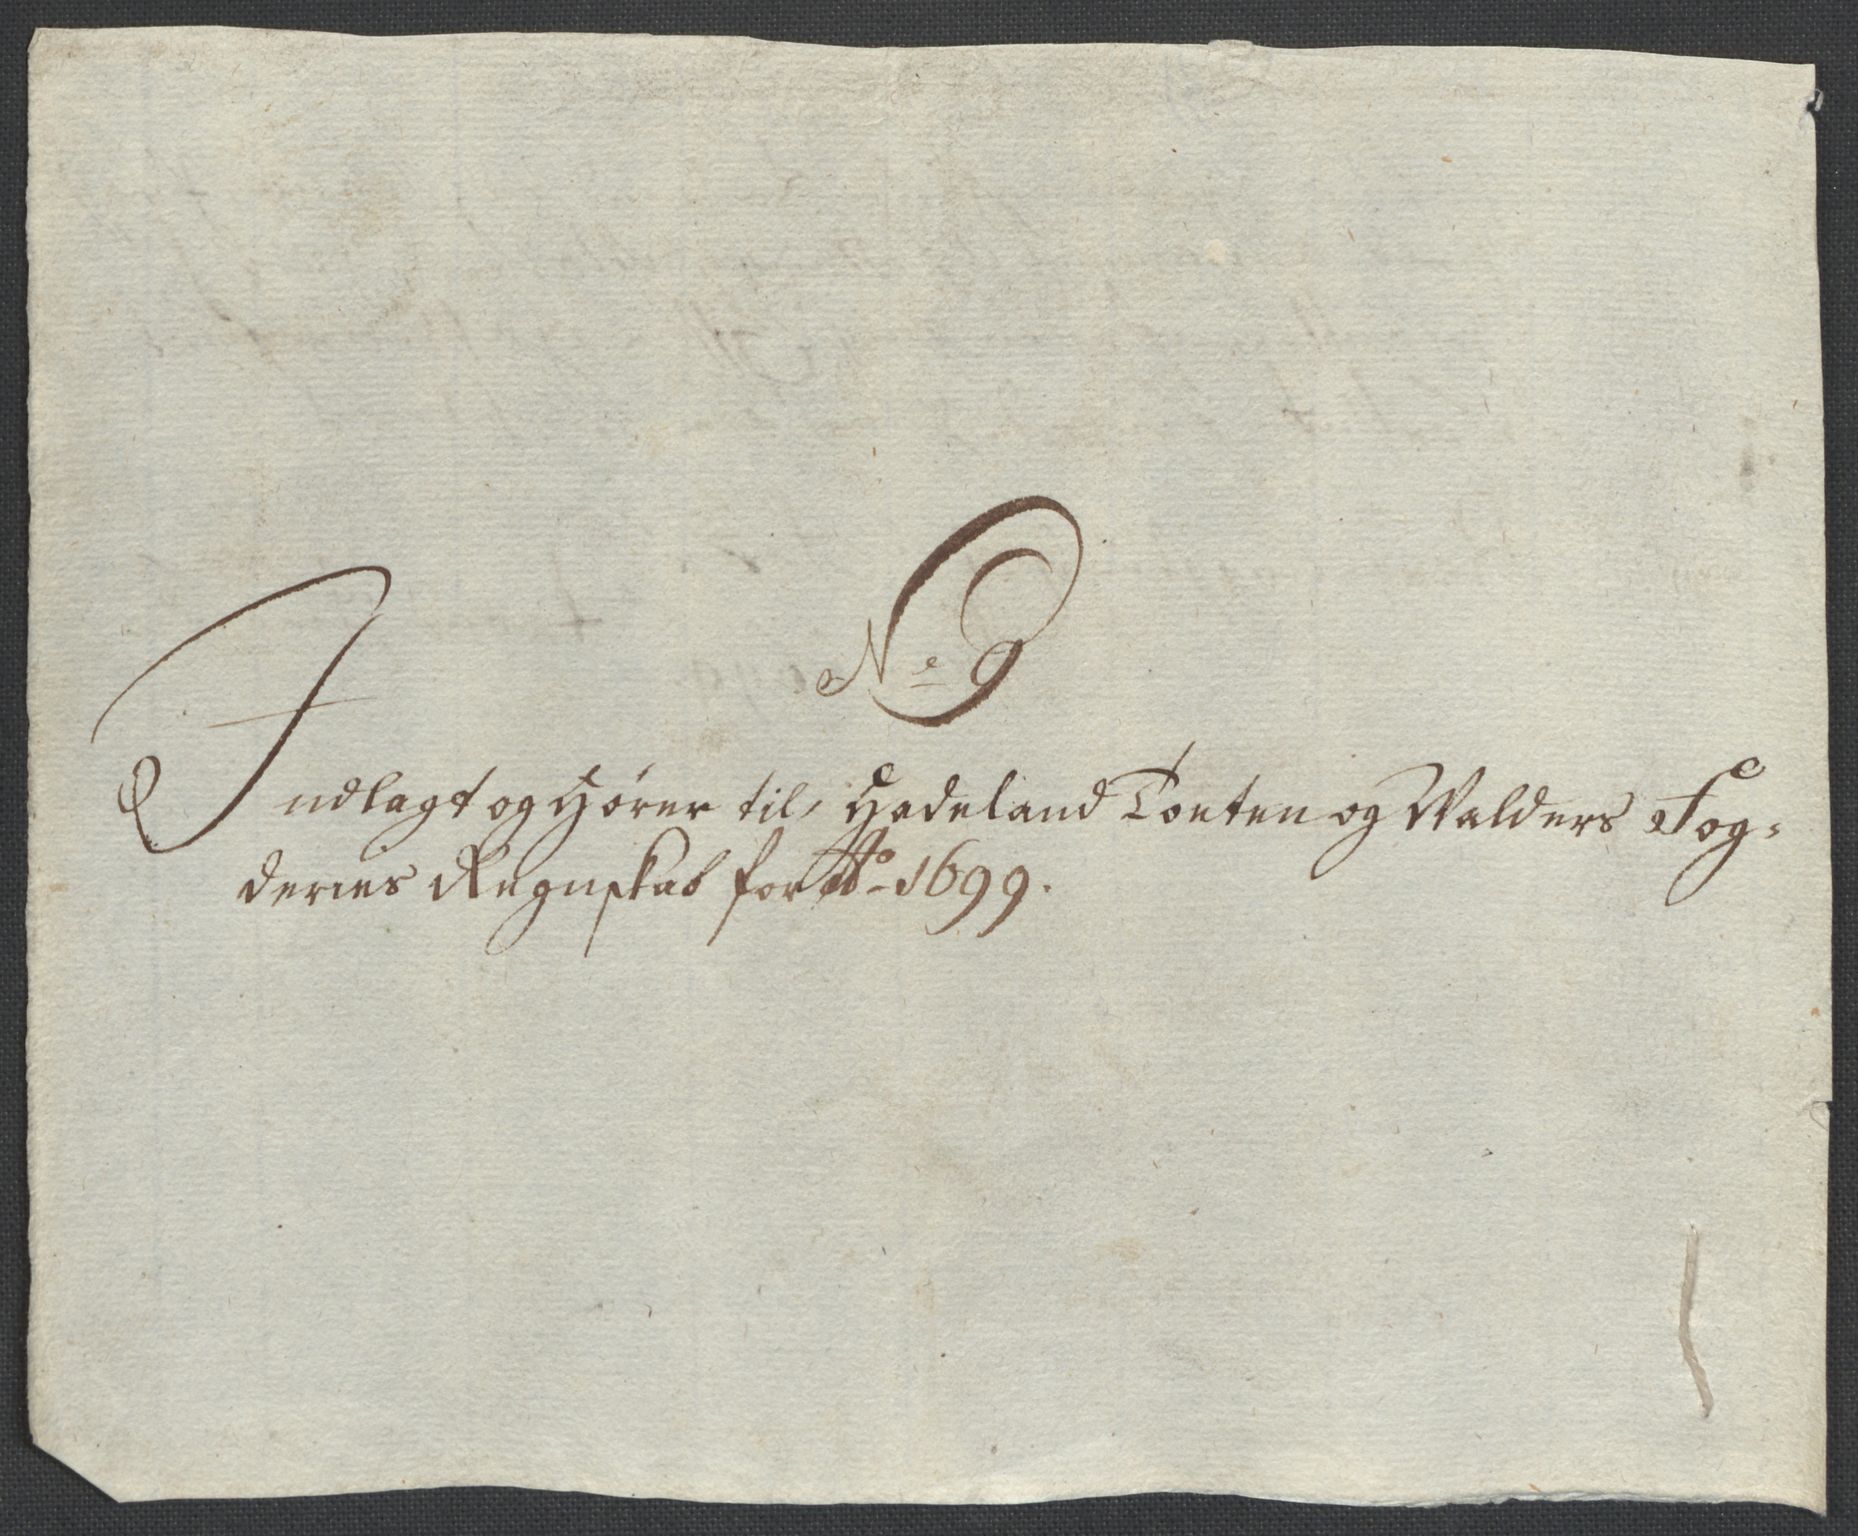 No 9
Indlagt og Hører til, Hadeland Toeten og Walders Fog=
deries Regnskab for Ao 1699.